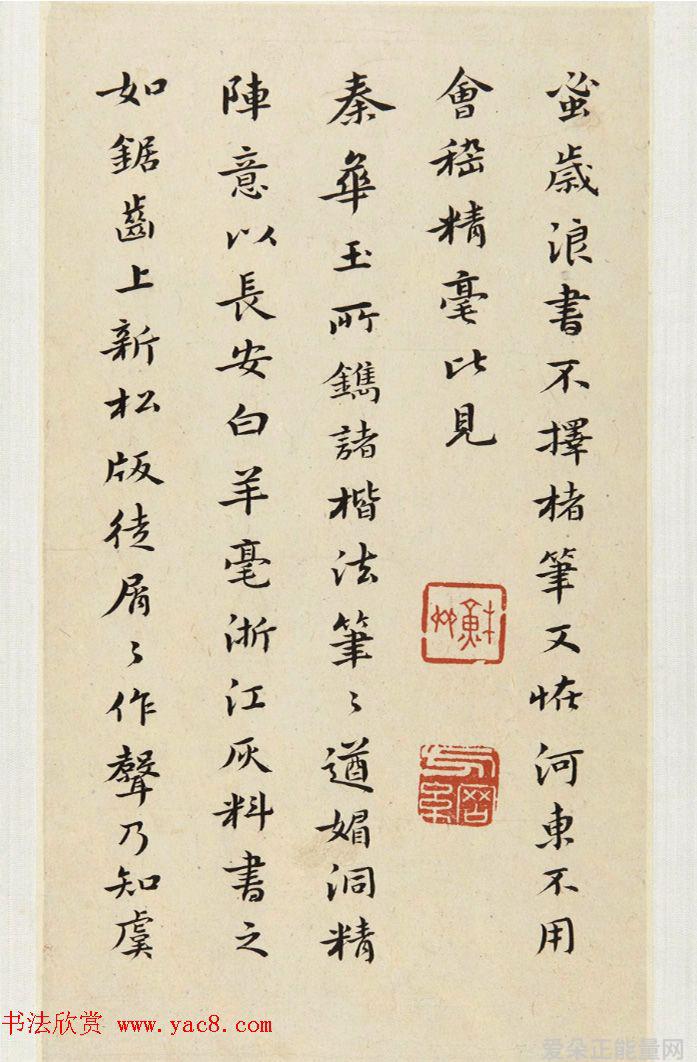 蚤歲浪書不擇楮筆又恠河東不用
會稽精毫比見
秦華玉所鐫諸楷法筆〻遒媚洞精
陣意以長安白羊毫浙江灰料書之
如鋸齒上新松版徒屑〻作聲乃知虞
书法欣赏 www.yac8.com
爱朵正能量网